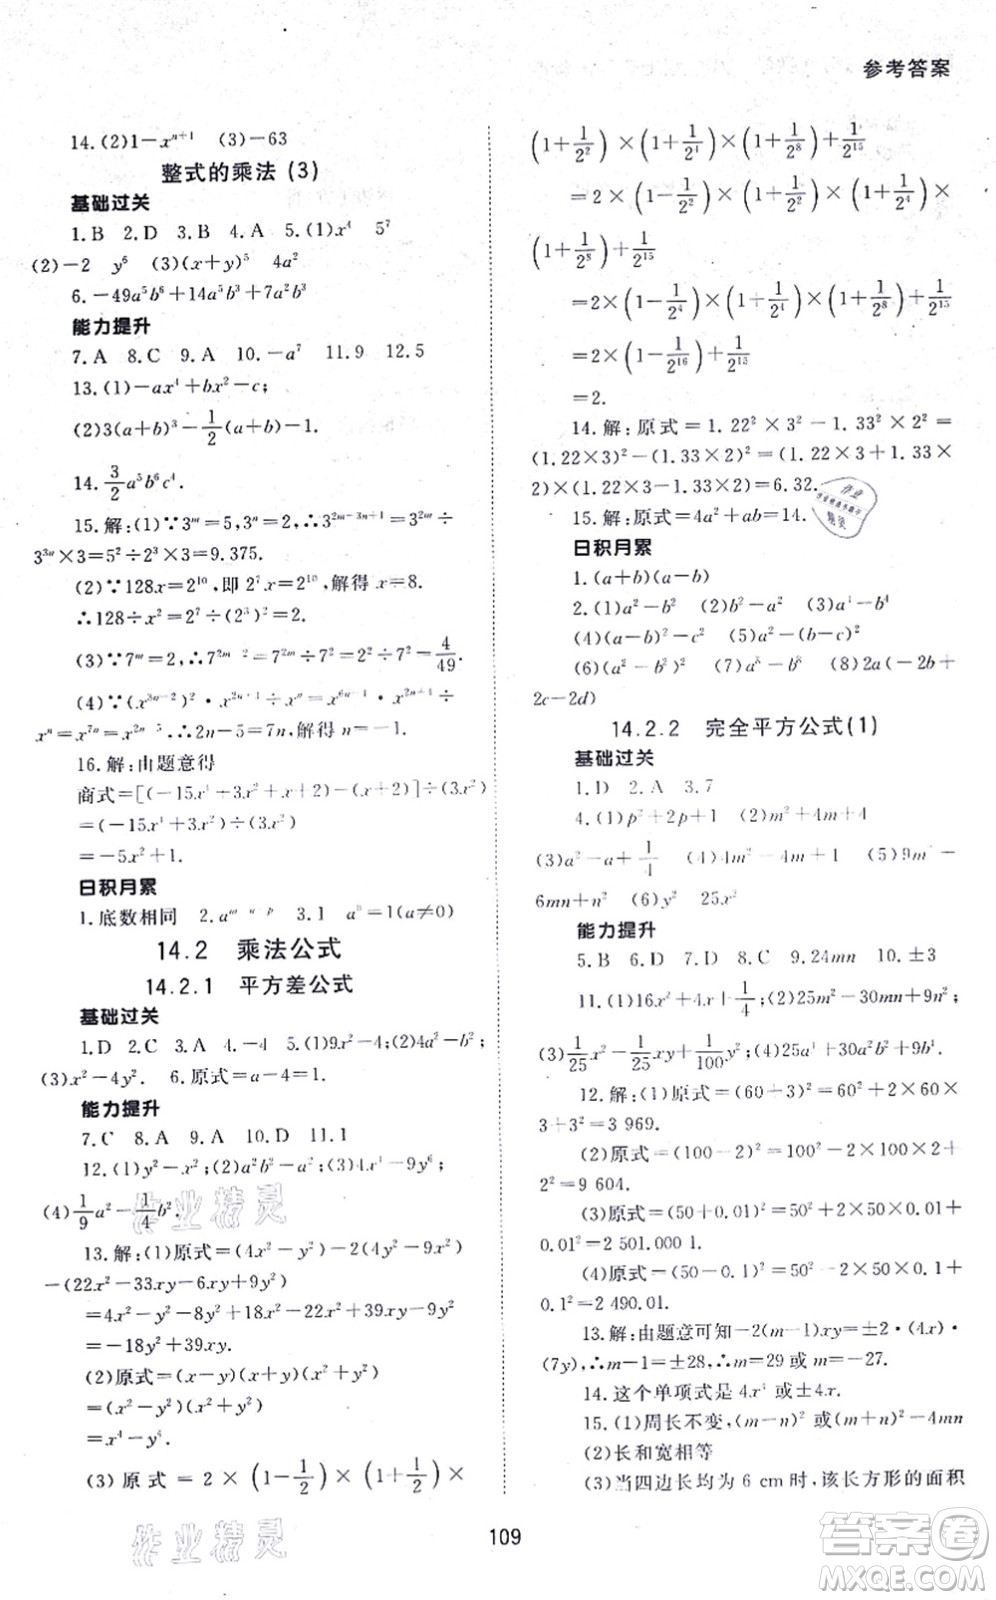 参考答案
14.(2)1－xⁿ⁺¹ (3)－63
整式的乘法 (3)
基础过关
1.B 2.D 3.B 4.A 5.(1)x⁴ 5⁷
(2)－2 y⁶ (3)(x＋y)⁵ 4a²
6.－49a⁵b⁶＋14a⁵b³＋7a²b²
能力提升
7.A 8.C 9.A 10.－a⁷ 11.9 12.5
13.(1)－ax⁴＋bx²－c;
(2)3(a＋b)³－1/2(a＋b)－1.
14.3/2a⁵b⁶c⁴.
15.解:(1)∵3ᵐ＝5,3ⁿ＝2,∴3²ᵐ⁻³ⁿ⁺¹＝3²ᵐ÷
3³ⁿ×3＝5²÷2³×3＝9.375.
(2)∵128x＝2¹⁰,即 2⁷x＝2¹⁰,解得 x＝8.
∴128÷x²＝2⁷÷(2³)²＝2.
16.解:由题意得
商式＝[(－15x⁴＋3x²＋x＋2)－(x＋2)]÷(3x²)
＝(－15x⁴＋3x²)÷(3x²)
＝－5x²＋1.
日积月累
1.底数相同 3.1 a⁰＝1(a≠0)
14.2 乘法公式
14.2.1 平方差公式
基础过关
1.D 2.C 3.A 4.－4 5.(1)9x²－4;(2)4a²－b²;
(3)x²－4y². 6.原式＝a－4＝1.
能力提升
7.C 8.A 9.A 10.D 11.1
12.(1)y²－x²;(2)a²b²－a²;(3)4x⁴－9y⁶;
(4)1/9a²－1/4b².
13.解:(1)原式＝(4x²－y²)－2(4x²－9y²)
－(22x²－33xy－6xy＋9y²)
＝4x²－y²－8x²＋18y²－22x²＋39xy－9y²
＝－18y²＋39xy.
(2)原式＝(x－y)(x＋y)(x²＋y²)
＝(x²－y²)(x²＋y²)
＝x⁴－y⁴.
(3)原式＝2×(1－1/2)×(1＋1/2)×
(1＋1/2²)×(1＋1/2⁴)×(1＋1/2⁸)＋1/2¹⁵
＝2×(1－1/2²)×(1＋1/2²)×(1＋1/2⁴)×
(1＋1/2⁸)＋1/2¹⁵
＝2×(1－1/2⁴)×(1＋1/2⁴)×(1＋1/2⁸)＋1/2¹⁵
＝2×(1－1/2¹⁶)＋1/2¹⁵
＝2.
14.解:原式＝1.22²×3²－1.33²×2²＝
(1.22×3)²－(1.33×2)²＝(1.22×3＋1.33×
2)×(1.22×3－1.33×2)＝6.32.
15.解:原式＝4a²＋ab＝14.
日积月累
1.(a＋b)(a－b)
2.(1)a²－b² (2)b²－a² (3)a⁴－b⁴
(4)(a－b)²－c² (5)a²－(b－c)²
(6)(a²－b²)² (7)a⁸－b⁸ (8)2a(－2b＋
2c－2d)
14.2.2 完全平方公式(1)
基础过关
1.D 2.A 3.7
4.(1)p²＋2p＋1 (2)m²＋4m＋4
(3)a²－a＋1/4 (4)4m²－4m＋1 (5)9m²－
6mn＋n² (6)y² 25x²
能力提升
5.B 6.D 7.A 8.C 9.24mn 10.±3
11.(1)16x²＋4x＋1/4;(2)25m²－30mn＋9n²;
(3)1/25x²－1/25xy＋1/100y²;(4)25a⁴＋30a²b²＋9b⁴.
12.解:(1)原式＝(60＋3)²＝60²＋2×60×
3＋3²＝3 969.
(2)原式＝(100－2)²＝100²－2×100×2＋
2²＝9 604.
(3)原式＝(50＋0.01)²＝50²＋2×50×0.01
＋0.01²＝2 501.000 1.
(4)原式＝(50－0.1)²＝50²－2×50×0.1＋
0.1²＝2 490.01.
13.解:由题意可知－2(m－1)xy＝±2·(4x)·
(7y),∴m－1＝±28,∴m＝29 或 m＝－27.
14.这个单项式是 4x⁴ 或±4x.
15.(1)周长不变,(m－n)² 或(m＋n)²－4mn
(2)长和宽相等
(3)当四边长均为 6 cm 时,该长方形的面积
109
作业精灵
作业精灵
答案圈
MXQE.COM